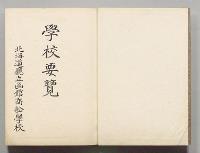 學校要覽
北海道廳立函館商船學校